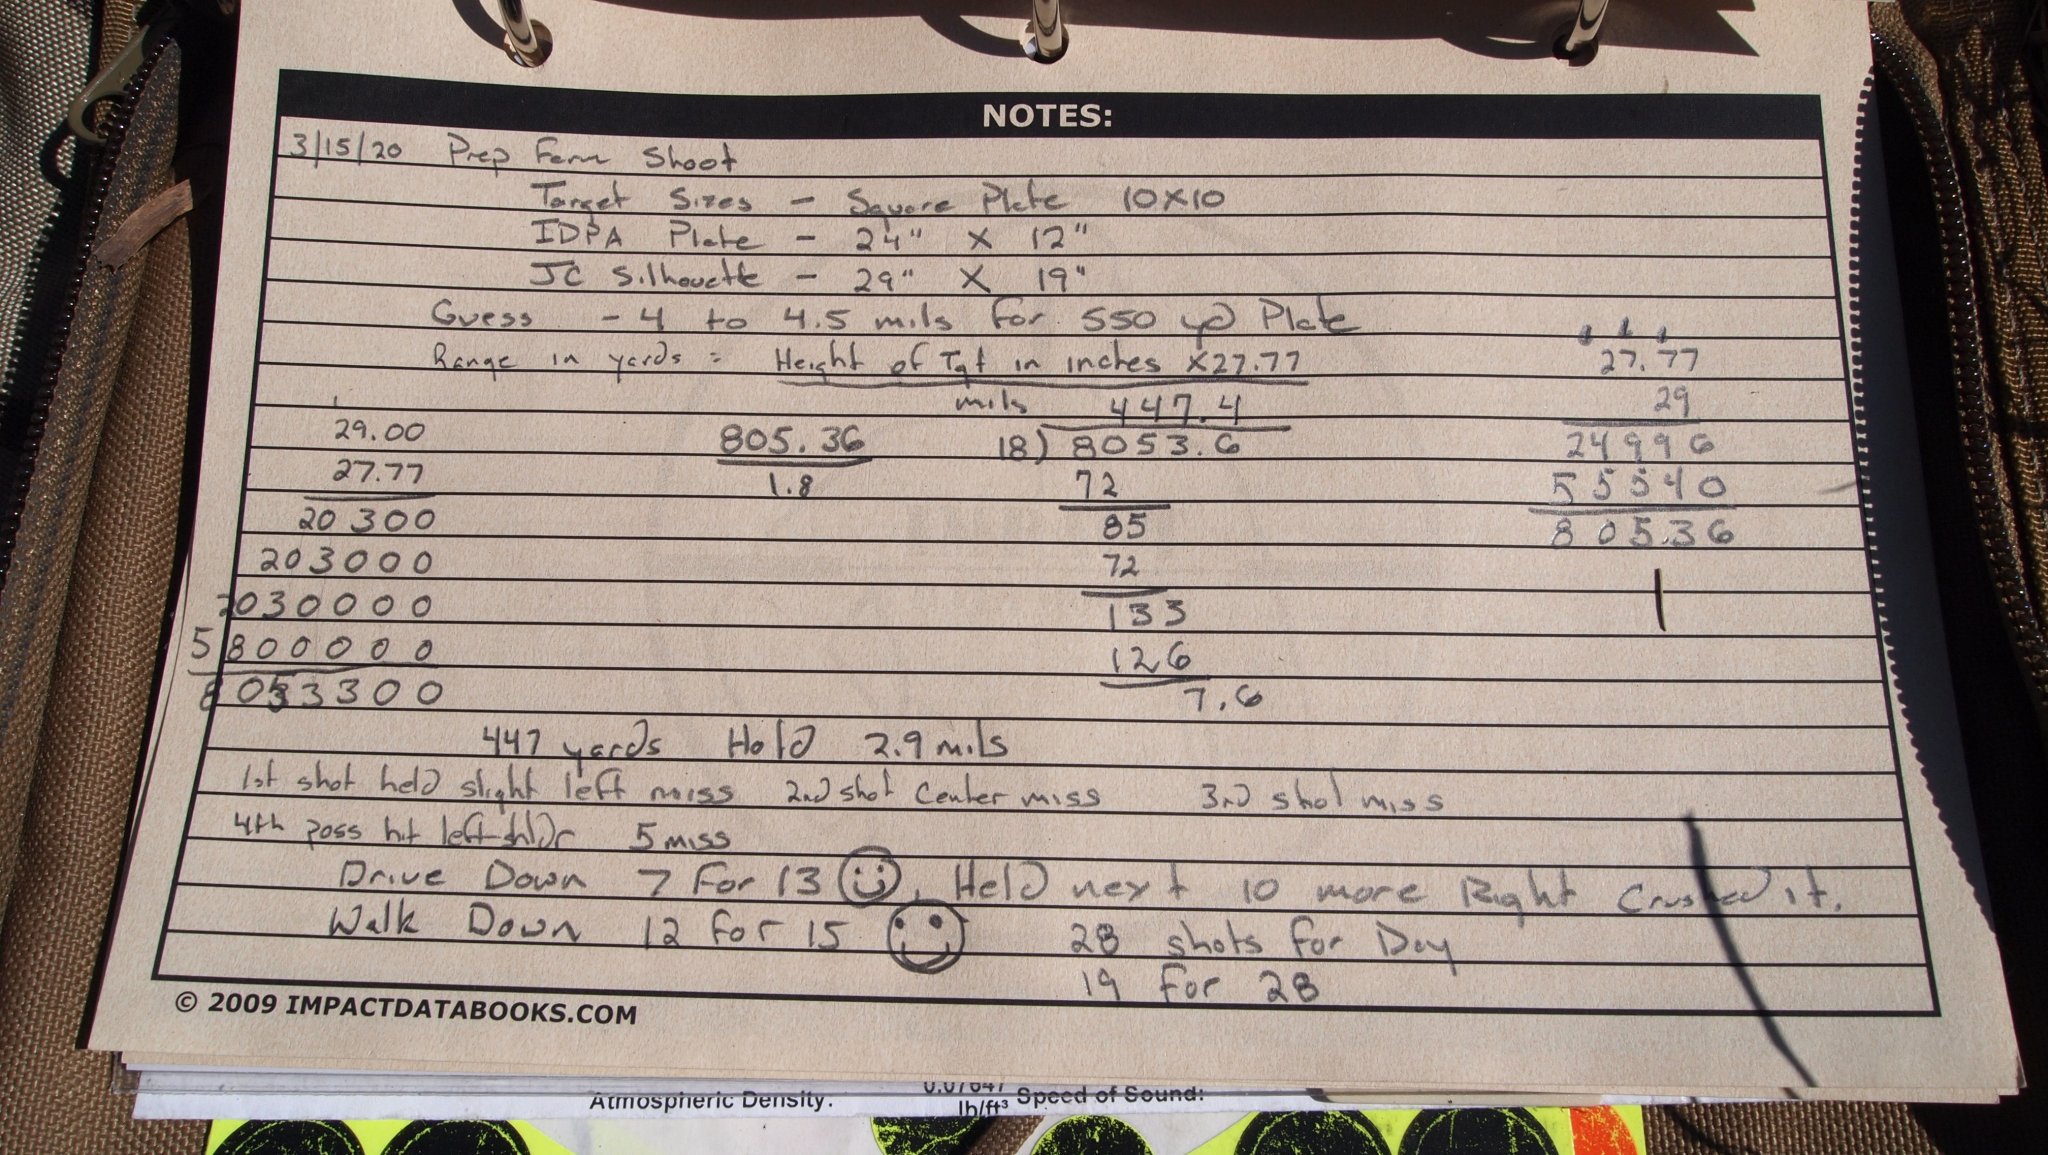 NOTES:
3/15/20 Prep Farm Shoot
Target Sizes - Square Plate 10X10
IDPA Plate - 24" X 12"
JC Silhouette - 29" X 19"
Guess - 4 to 4.5 mils for 550 yd Plate
Range in yards = Height of Tgt in inches X27.77
mils
27.77
29
24996
55540
805.36
29.00
27.77
20300
203000
2030000
5800000
8053300
805.36
1.8
447.4
18) 8053.6
72
85
72
133
126
7.6
447 yards Hold 2.9 mils
1st shot held slight left miss 2nd shot Center miss 3rd shot miss
4th poss hit left shldr 5 miss
Drive Down 7 for 13 , Held next 10 more Right Crushed it.
Walk Down 12 for 15 28 shots for Day
19 for 28
© 2009 IMPACTDATABOOKS.COM
Atmospheric Density: 0.07647 lb/ft³ Speed of Sound: